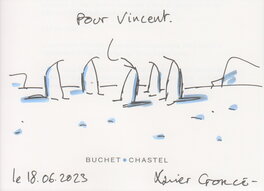 Pour Vincent.
BUCHET • CHASTEL
le 18.06.2023 Xavier Gorce